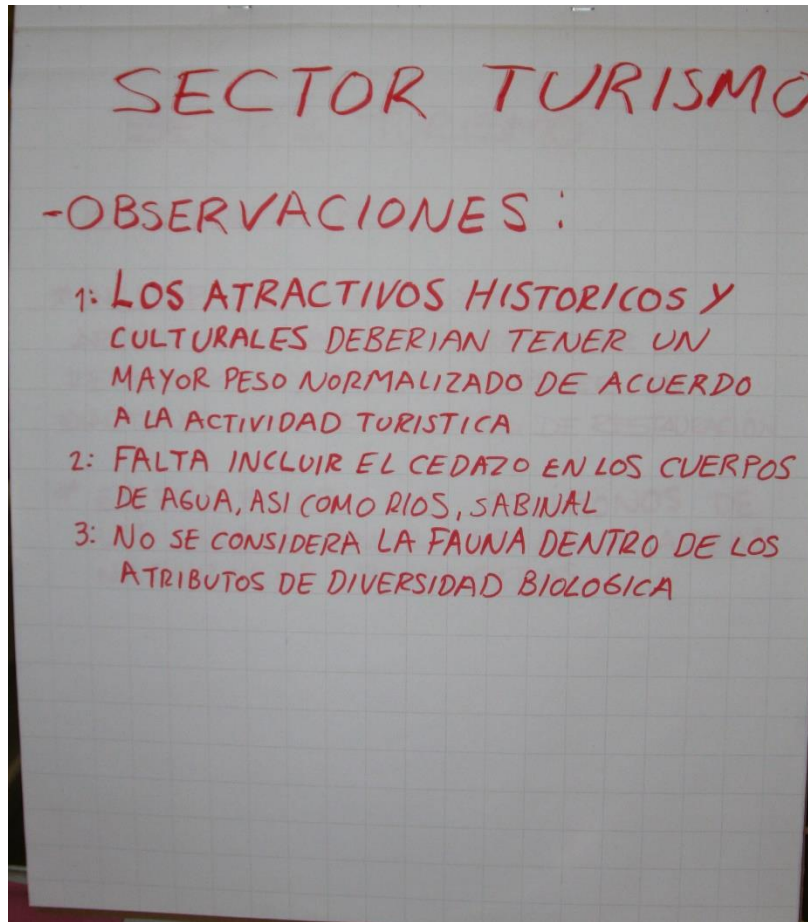 SECTOR TURISMO
-OBSERVACIONES:
1: LOS ATRACTIVOS HISTORICOS Y
CULTURALES DEBERIAN TENER UN
MAYOR PESO NORMALIZADO DE ACUERDO
A LA ACTIVIDAD TURISTICA
2: FALTA INCLUIR EL CEDAZO EN LOS CUERPOS
DE AGUA, ASI COMO RIOS, SABINAL
3: NO SE CONSIDERA LA FAUNA DENTRO DE LOS
ATRIBUTOS DE DIVERSIDAD BIOLOGICA